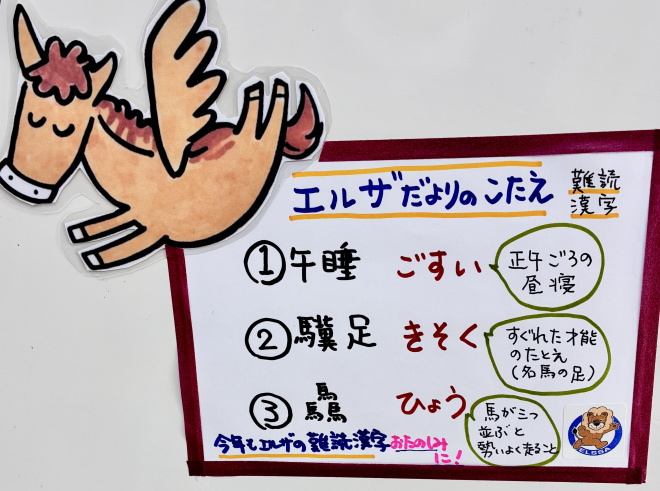 エルザだよりのこたえ
難読
漢字
①午睡 ごすい
正午ごろの
昼寝
②驥足 きそく
すぐれた才能
のたとえ
(名馬の足)
③驫 ひょう
馬が三つ
並ぶと
勢いよく走ること
今年もエルザの難読漢字おたのしみ
に!
ELSSA